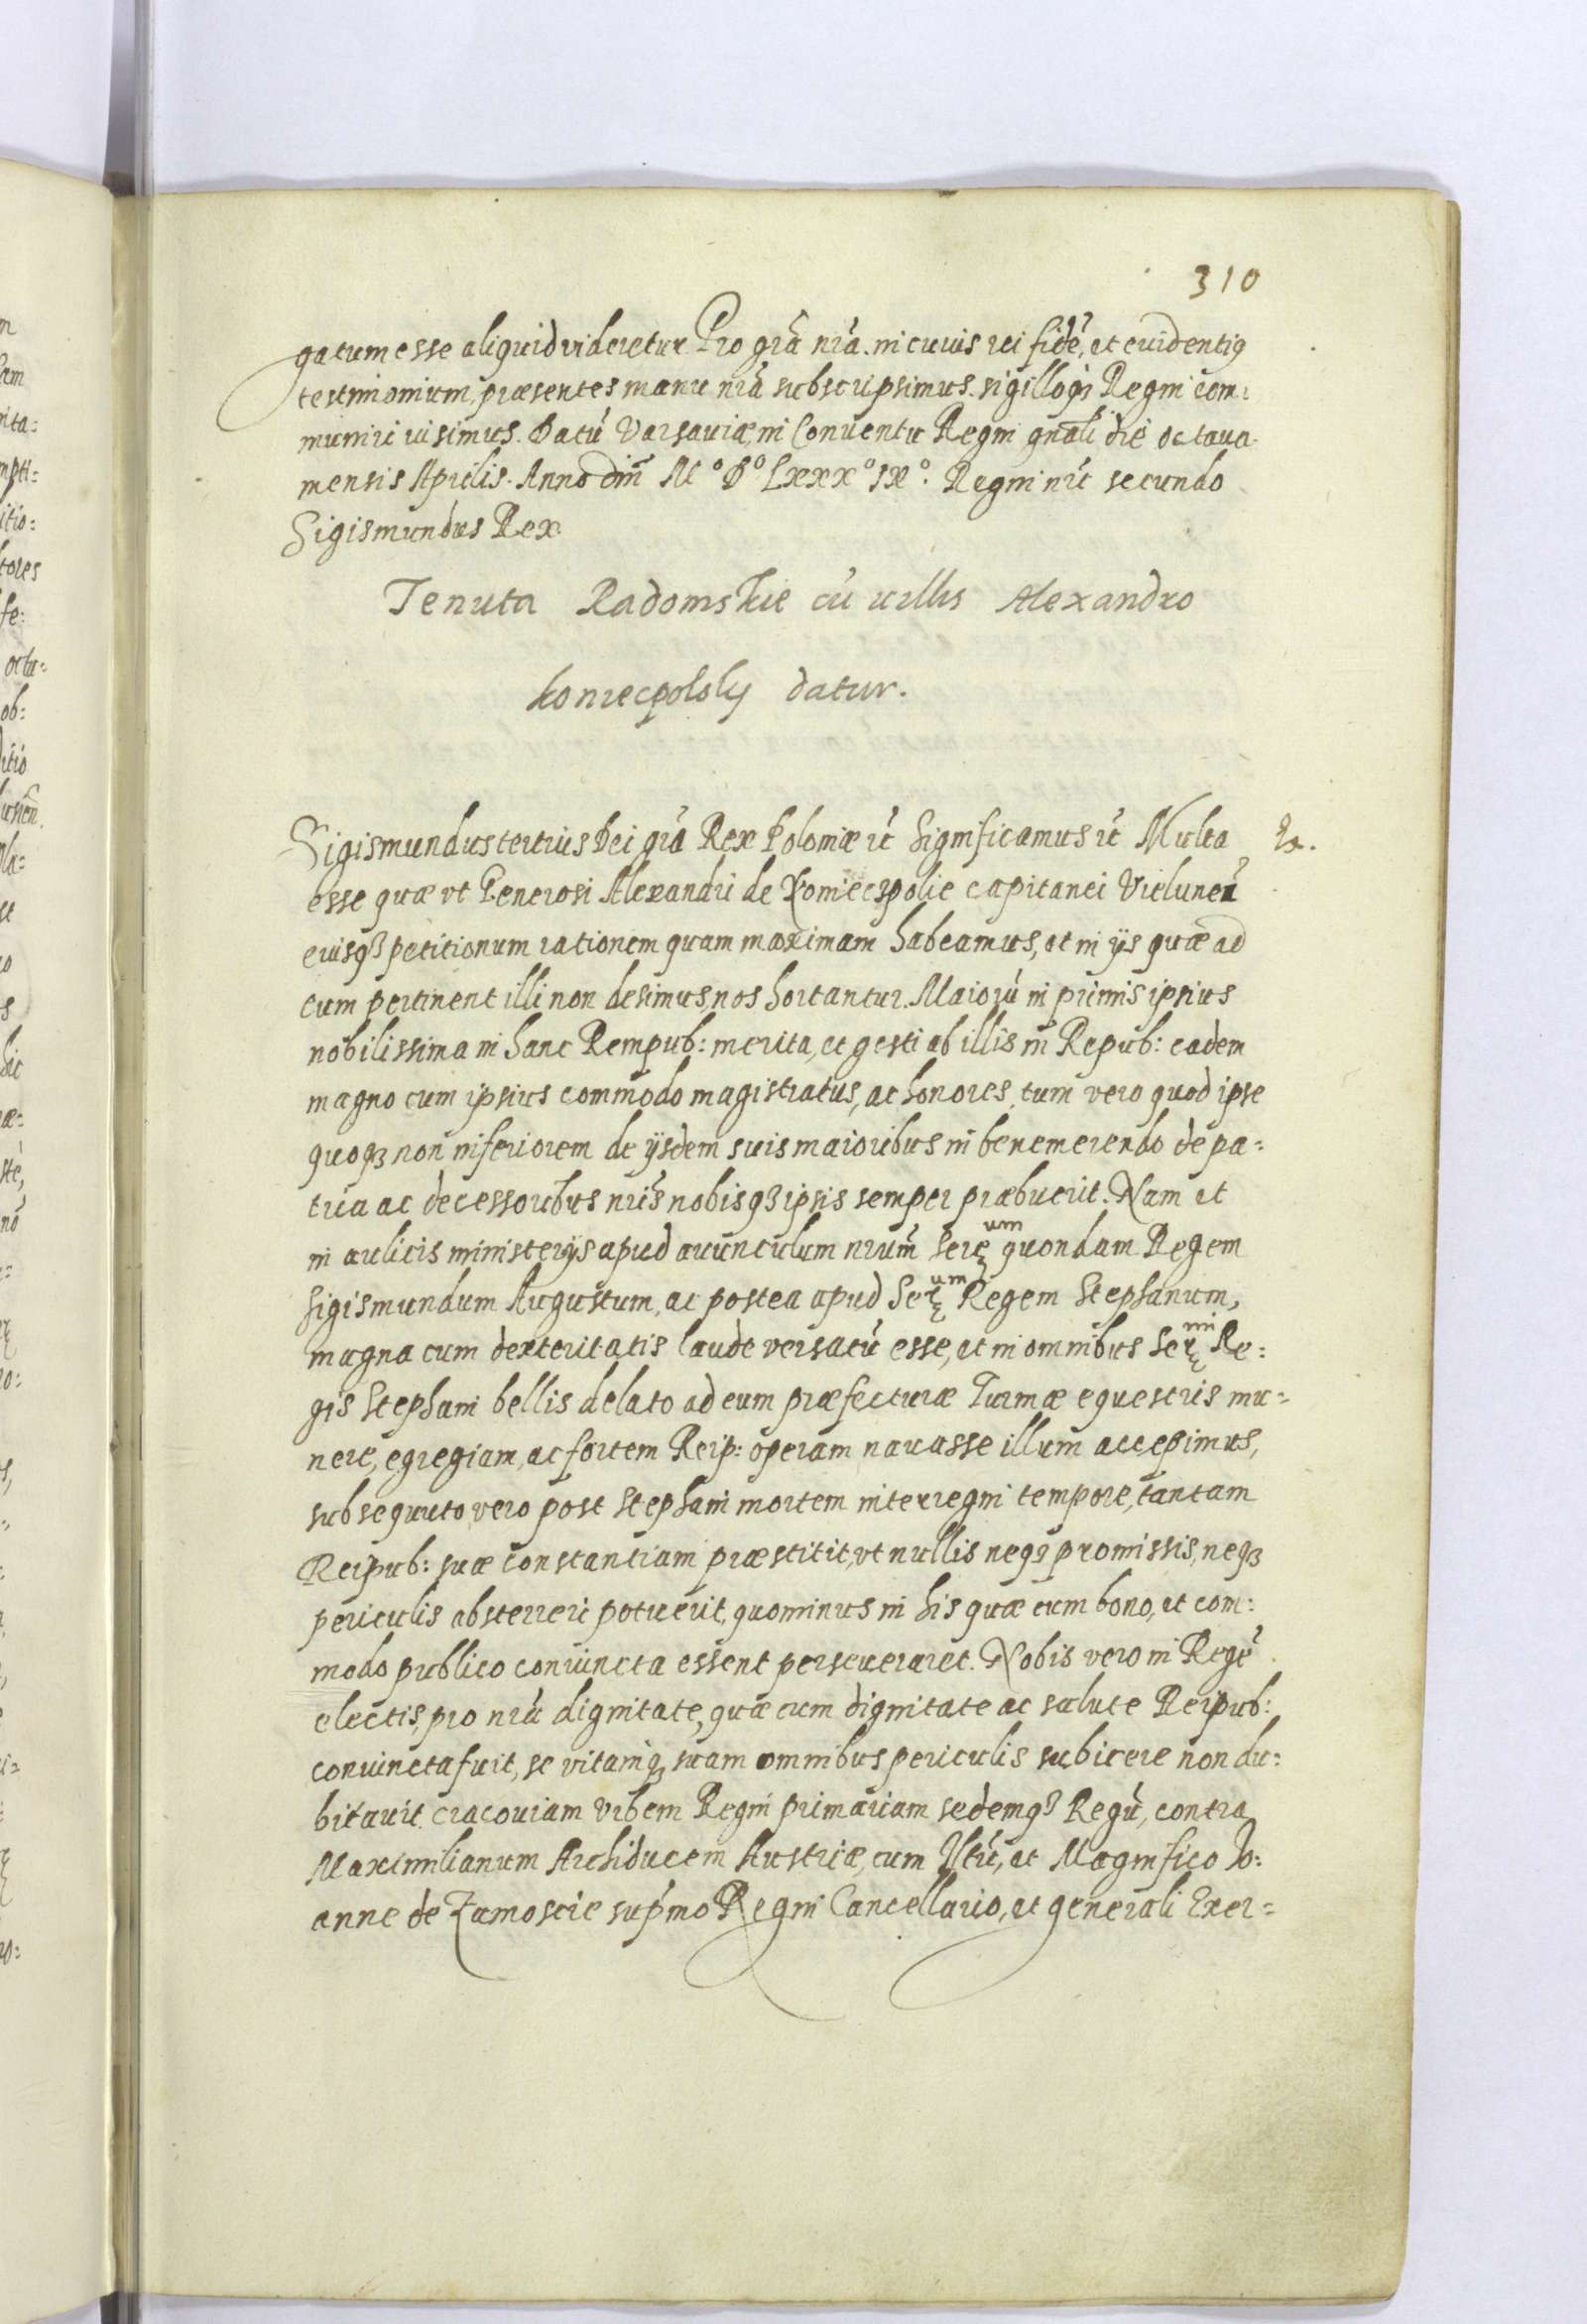 310
gatum esse aliquid videretur. Pro grã nrã. in cuius rei fidẽ, et euidentiq
testimonium, præsentes manu nrã subscripsimus. sigilloq3 Regni com:
muniri iusimus. Datũ Varsauiæ, in Conuentu Regni gnãli die octaua
mensis Aprilis. Anno dm̃ M° D° Lxxx° ix°. Regni nr̃i secundo
Sigismundus Rex.
Tenuta Radomskie cũ villis Alexandro
koniecpolsky datur.
Sigismundus tertius Dei grã Rex Poloniæ et̃ Significamus et̃ Multa
esse quæ vt Generosi Alexandri de Koniecspolie capitanei Vielunen̄
eiusq3 petitionum rationem quam maximam habeamus, et in ijs quæ ad
eum pertinent illi non desimus, nos hortantur. Maiorũ in primis ipsius
nobilissima in hanc Rempub: merita, et gesti ab illis in Repub: eadem
magno cum ipsius commodo magistratus, ac honores, tum vero quod ipse
quoq3 non inferiorem de ijsdem suis maioribus in benemerendo de pa:
tria ac decessoribus nr̃is nobisq3 ipsis semper præbuerit. Nam et
in aulicis ministerijs apud auunculum nrum̃ Serę um quondam Regem
Sigismundum Augustum, ac postea apud Serę um Regem Stephanum,
magna cum dexteritatis laude versatũ esse, et in omnibus Serę mi Re:
gis Stephani bellis delato ad eum præfecturæ Turmæ equestris mu:
nere, egregiam, ac fortem Reip: operam nauasse illum accepimus,
subsequuto vero post Stephani mortem interregni tempore, tantam
Reipub: suæ constantiam præstitit, vt nullis neq3 promissis, neq3
periculis absterreri potuerit, quominus in his quæ cum bono, et com:
modo publico coniuncta essent perseueraret. Nobis vero in Regẽ
electis, pro nrã dignitate, quæ cum dignitate ac salute Reipub:
coniuncta fuit, se vitamq3 suam omnibus periculis subicere non du:
bitauit. Cracouiam vrbem Regni primariam sedemq3 Regũ, contra
Maximilianum Archiducem Austriæ, cum Illũ, et Magnifico Jo:
anne de Zamoscie supm̃o Regni Cancellario, et generali Exer: